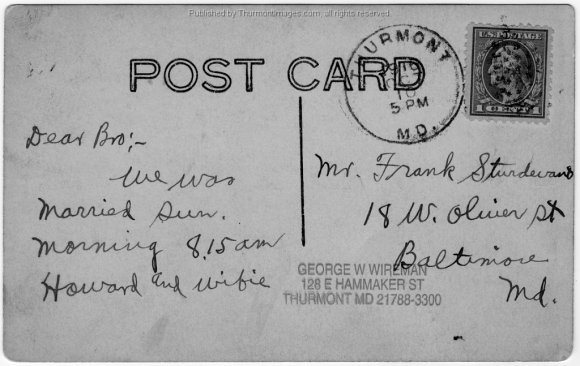 Published by Thurmontimages.com, all rights reserved
POST CARD
THURMONT
10
5 PM
MD.
U.S. POSTAGE
Dear Bro;-
We was
Married Sun.
Morning 8.15 am
Howard and Wifie
Mr. Frank Sturdevant
18 W. Oliver St
Baltimore
Md.
GEORGE W WIREMAN
128 E HAMMAKER ST
THURMONT MD 21788-3300